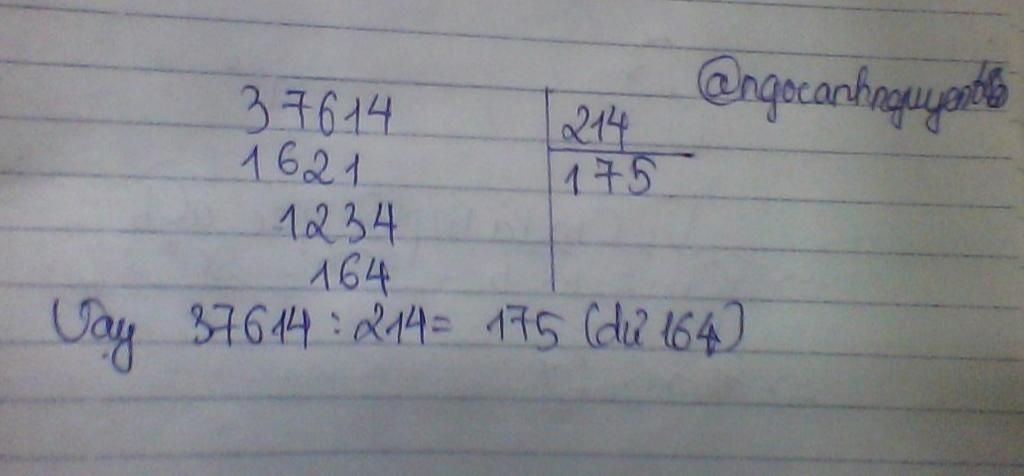 @ngocanhnguyen
37614 214
1621 175
1234
164
Vậy 37614 : 214 = 175 (dư 164)